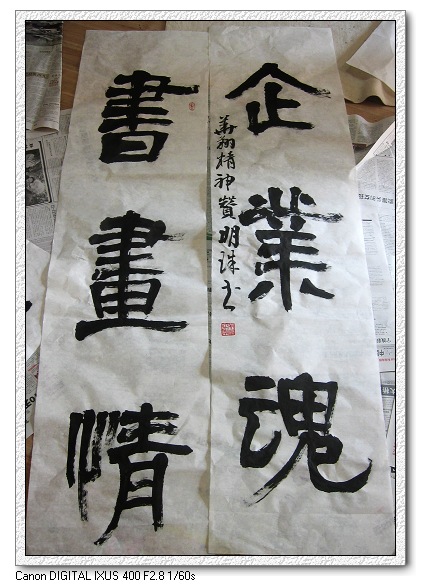 企業魂
書畫情
華翔精神贊明珠書
Canon DIGITAL IXUS 400 F2.8 1/60s